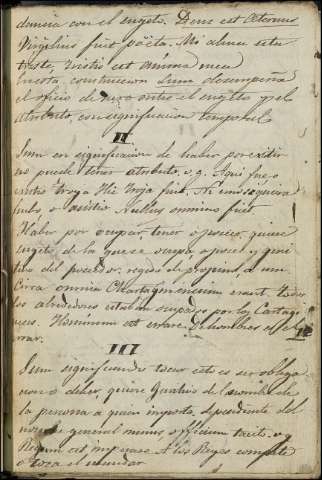 domina con el sugeto. Deus est Æternus
Virgilius fuit poëta. Mi alma esta
triste, tristis est anima mea
En esta, construccion Sum desempeña
el oficio de nexo entre el sugeto y el
atributo, con significacion temporal
II
Sum en significacion de haber por existir
no puede tener atributo. v.g. Aqui fue o
existio troya Hic troja fuit. Ni uno siquiera
hubo, o existio Nullus omnino fuit.
Haber por ocupar tener o poseer, quiere
sugeto de la que se ocupa o posee y geni
tivo del poseedor. regido de proprium, a um
Circa omnia Chartaginensium erant, todos
los alrededores estaban ocupados por los Cartagi
neses. Hominum est errare, de hombres es el er
rar.
III
Sum significando tocar esto es ser obliga
cion o deber, quiere Genitivo del nombre de
la persona a quien importa, dependiente del
nombre general munus, officium tacito. v.g.
Regum est imperare A los Reyes compete
o toca el mandar